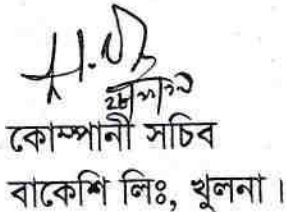 কোম্পানী সচিব
বাকেশি লিঃ, খুলনা।